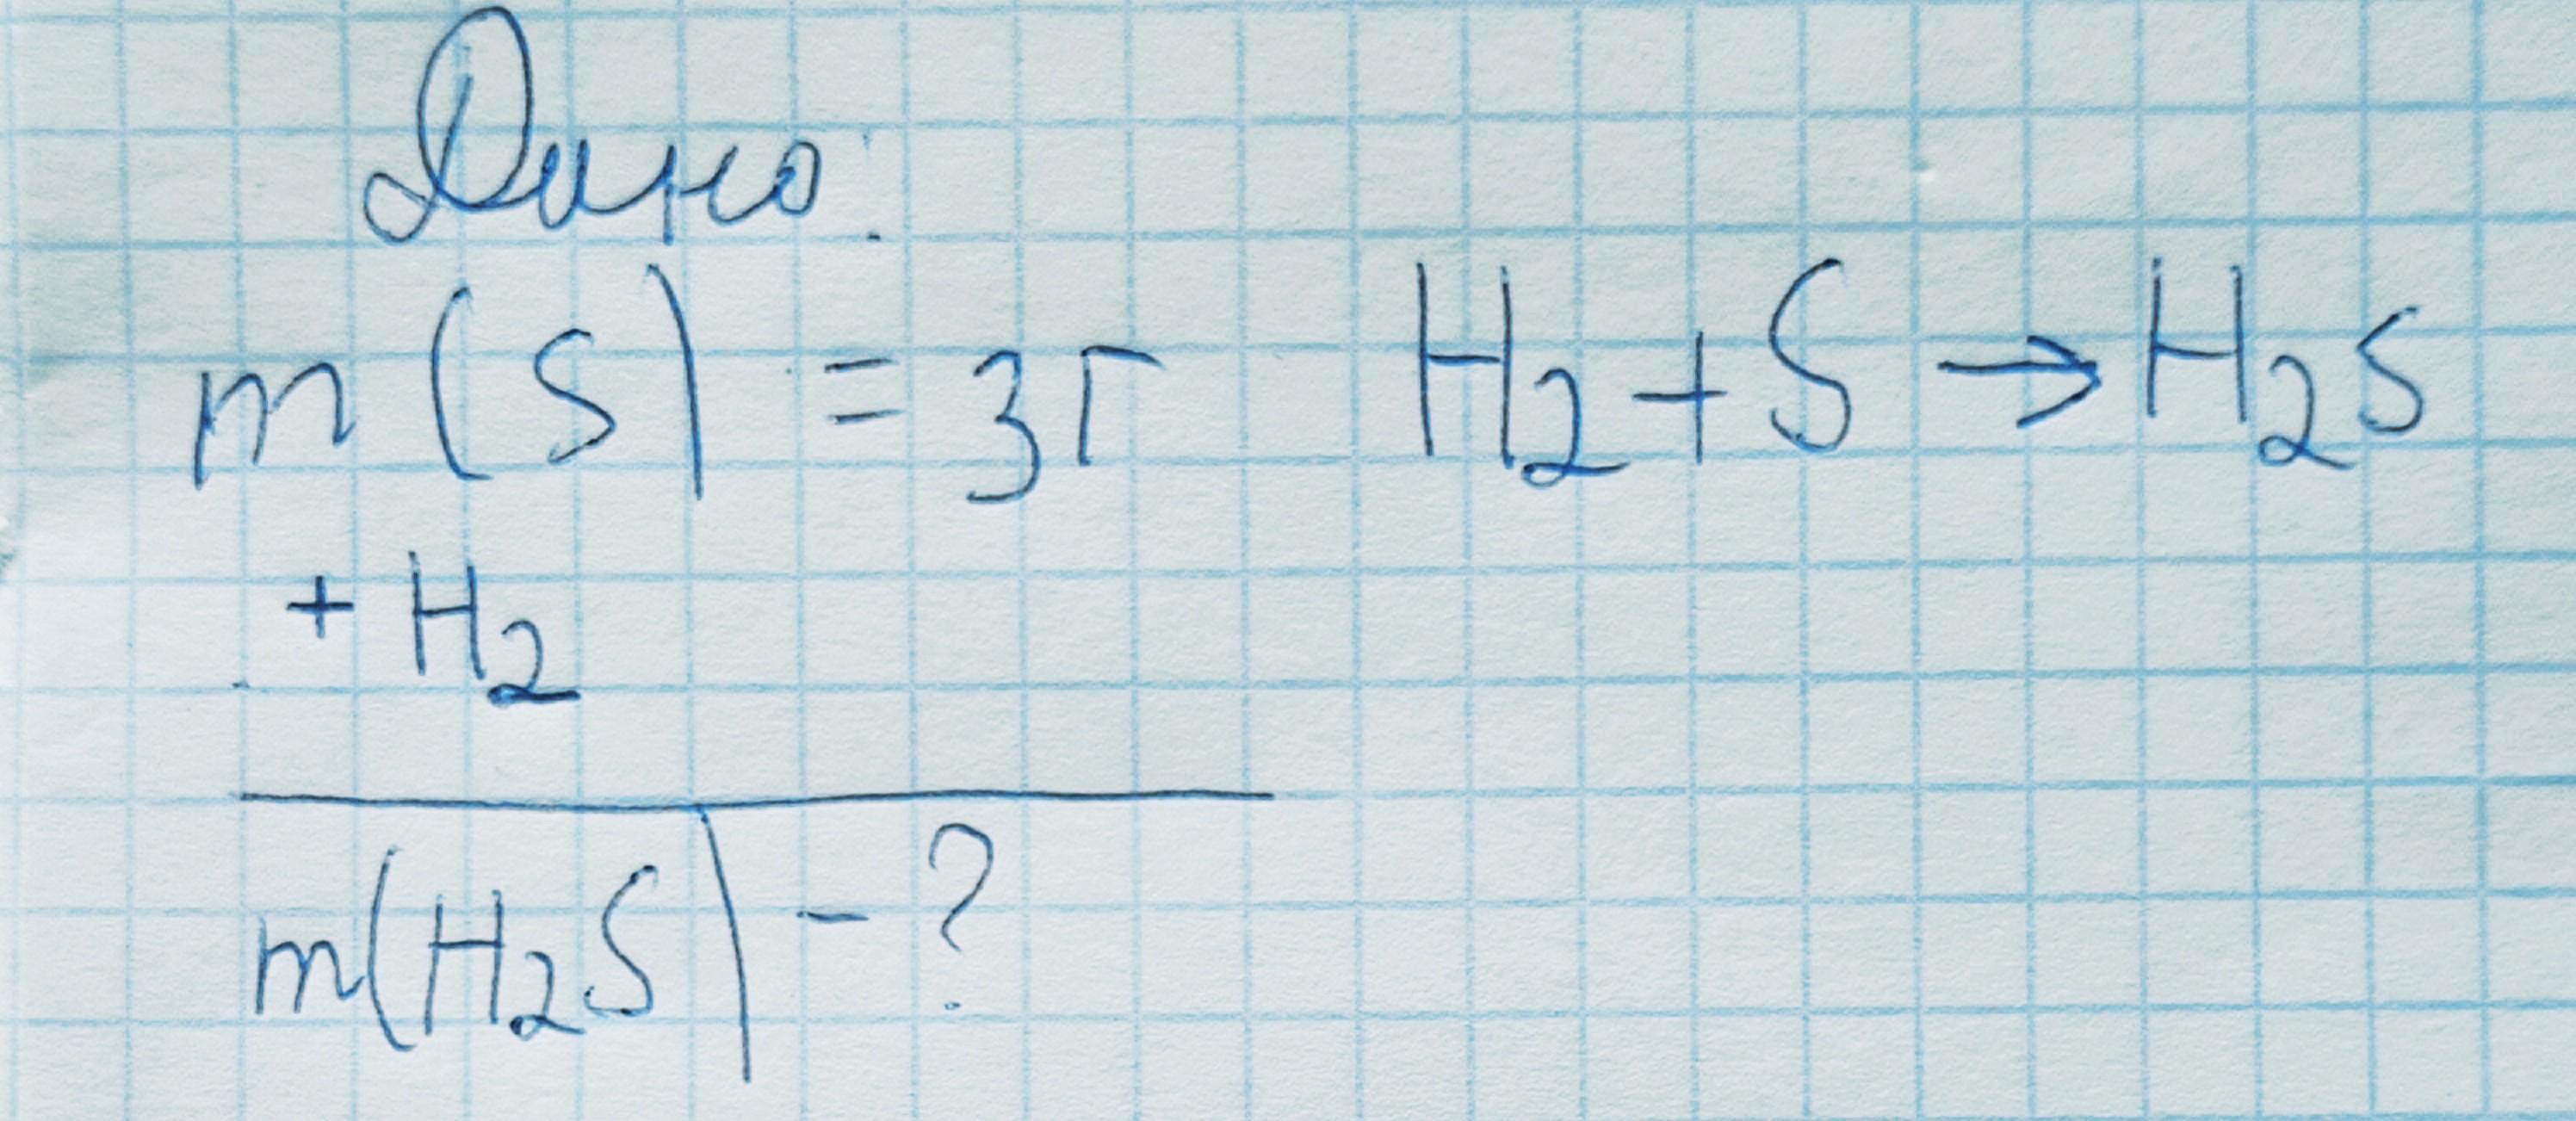 Дано:
m(S) = 3г
H₂ + S → H₂S
+ H₂
m(H₂S) - ?